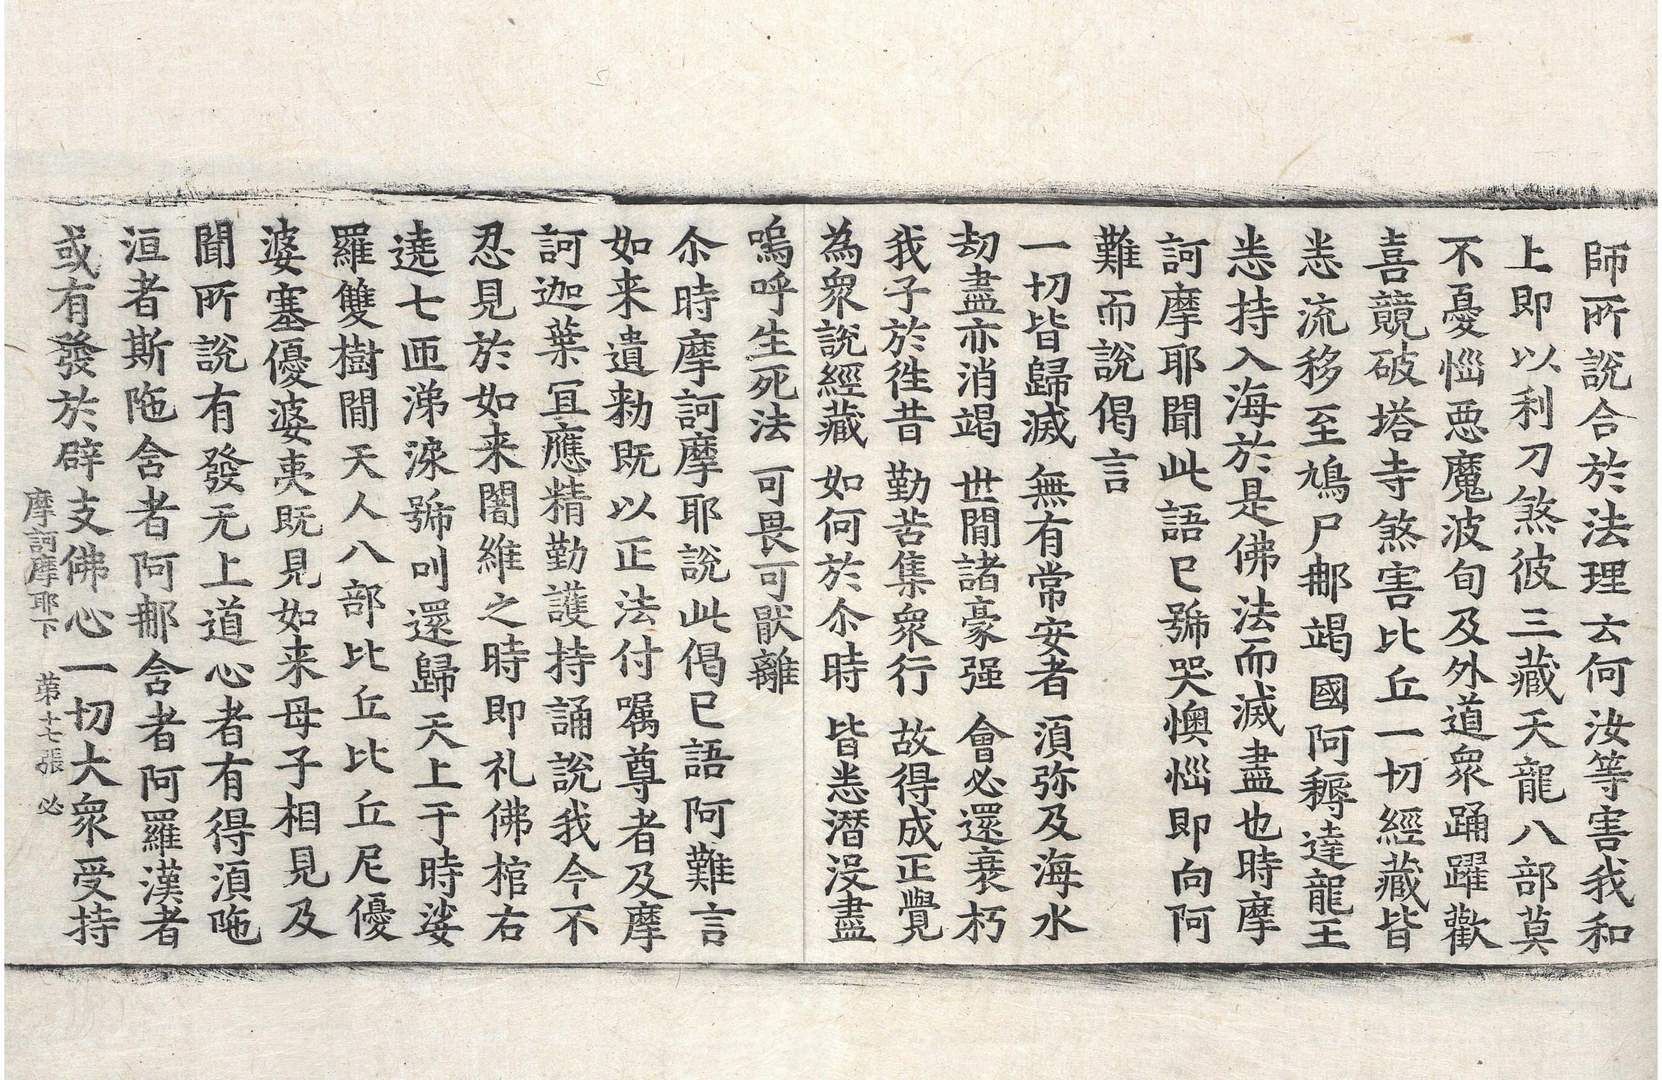 師所說合於法理云何汝等害我和
上即以利刀煞彼三藏天龍八部莫
不憂惱惡魔波旬及外道衆踊躍歡
喜競破塔寺煞害比丘一切經藏皆
悉流移至鳩尸那竭國阿耨達龍王
悉持入海於是佛法而滅盡也時摩
訶摩耶聞此語已號哭懊惱即向阿
難而說偈言
一切皆歸滅 無有常安者 須弥及海水
劫盡亦消竭 世間諸豪强 會必還衰朽
我子於徃昔 勤苦集衆行 故得成正覺
為衆說經藏 如何於尒時 皆悉潛没盡
嗚呼生死法 可畏可厭離
尒時摩訶摩耶說此偈已語阿難言
如来遺勑既以正法付囑尊者及摩
訶迦葉冝應精勤護持誦說我今不
忍見於如来闍維之時即礼佛棺右
遶七匝涕淚號叫還歸天上于時娑
羅雙樹間天人八部比丘比丘尼優
婆塞優婆夷既見如来母子相見及
聞所說有發无上道心者有得須陁
洹者斯陁含者阿那含者阿羅漢者
或有發於辟支佛心一切大衆受持
摩訶摩耶下 第十七張 必